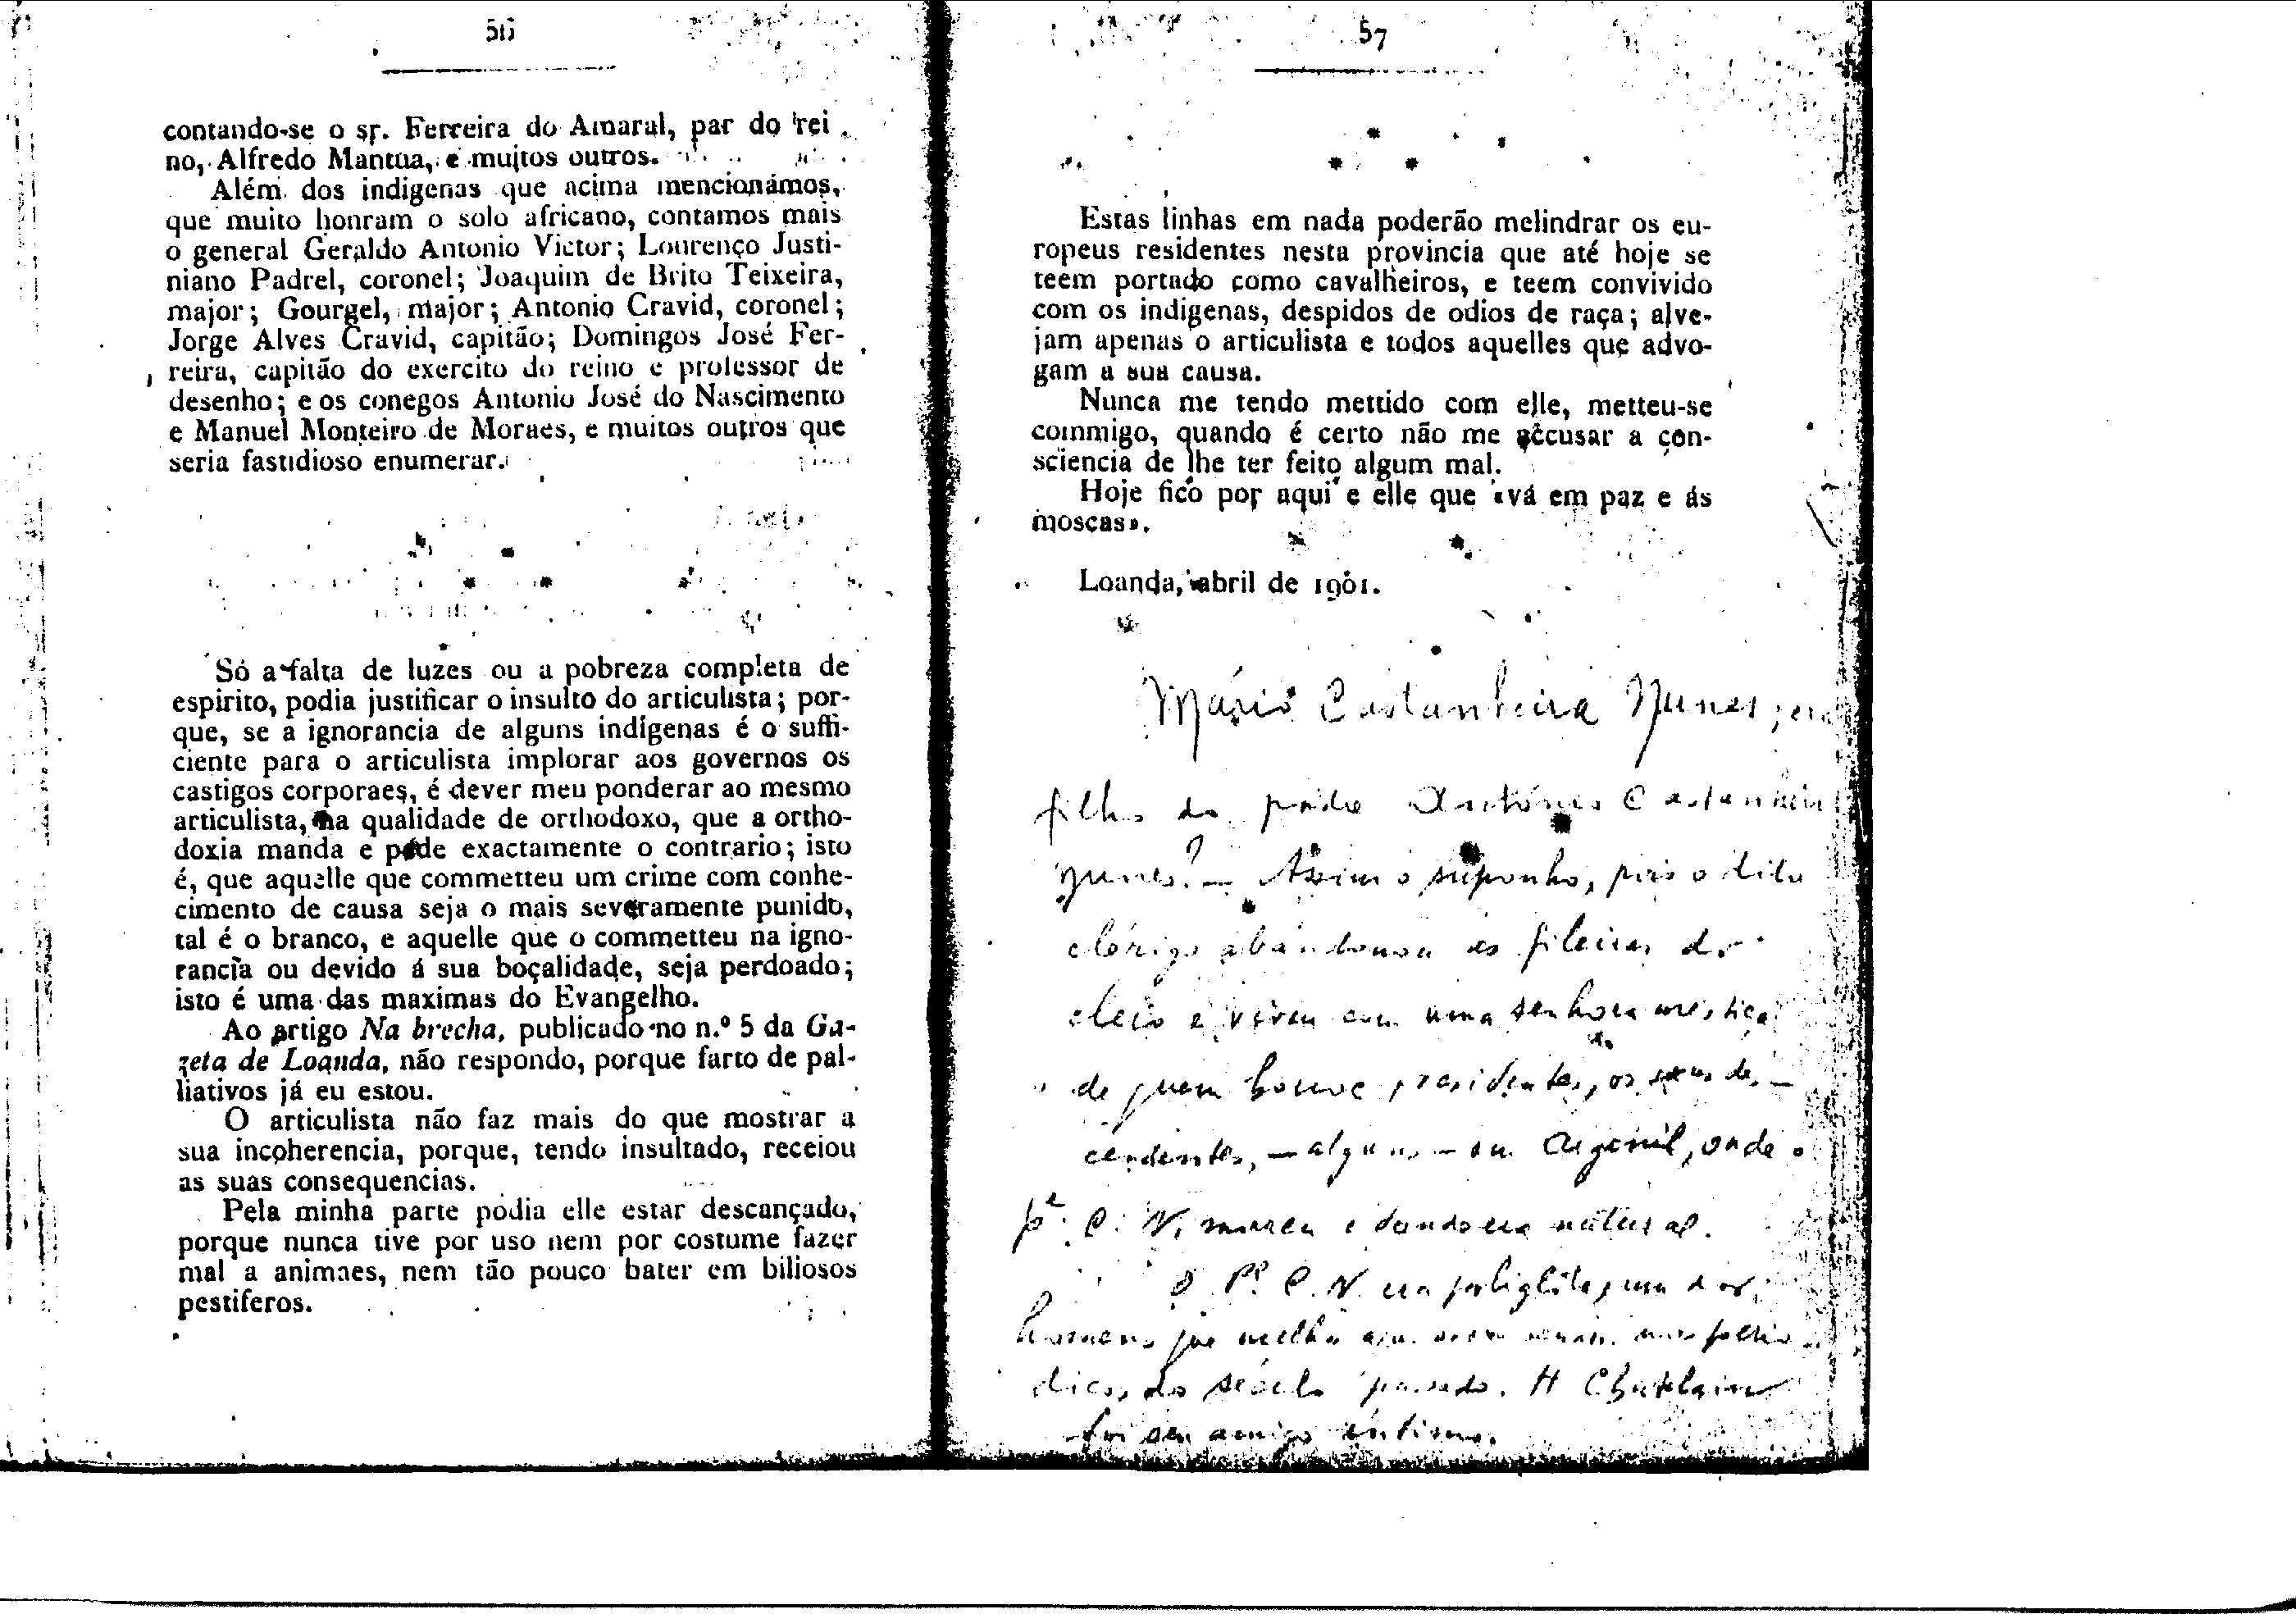 56
contando-se o sr. Ferreira do Amaral, par do rei
no, Alfredo Mantua, e muitos outros.
Além dos indigenas que acima mencionámos,
que muito honram o solo africano, contamos mais
o general Geraldo Antonio Victor; Lourenço Justi-
niano Padrel, coronel; Joaquim de Brito Teixeira,
major; Gourgel, major; Antonio Cravid, coronel;
Jorge Alves Cravid, capitão; Domingos José Fer-
reira, capitão do exercito do reino e professor de
desenho; e os conegos Antonio José do Nascimento
e Manuel Monteiro de Moraes, e muitos outros que
seria fastidioso enumerar.
Só a falta de luzes ou a pobreza completa de
espirito, podia justificar o insulto do articulista; por-
que, se a ignorancia de alguns indigenas é o suffi-
ciente para o articulista implorar aos governos os
castigos corporaes, é dever meu ponderar ao mesmo
articulista, na qualidade de orthodoxo, que a ortho-
doxia manda e pede exactamente o contrario; isto
é, que aquelle que commetteu um crime com conhe-
cimento de causa seja o mais severamente punido,
tal é o branco, e aquelle que o commetteu na igno-
rancia ou devido á sua boçalidade, seja perdoado;
isto é uma das maximas do Evangelho.
Ao artigo Na brecha, publicado no n.º 5 da Ga-
zeta de Loanda, não respondo, porque farto de pal-
liativos já eu estou.
O articulista não faz mais do que mostrar a
sua incoherencia, porque, tendo insultado, receiou
as suas consequencias.
Pela minha parte podia elle estar descançado,
porque nunca tive por uso nem por costume fazer
mal a animaes, nem tão pouco bater em biliosos
pestiferos.
57
* * *
Estas linhas em nada poderão melindrar os eu-
ropeus residentes nesta provincia que até hoje se
teem portado como cavalheiros, e teem convivido
com os indigenas, despidos de odios de raça; alve-
jam apenas o articulista e todos aquelles que advo-
gam a sua causa.
Nunca me tendo mettido com elle, metteu-se
commigo, quando é certo não me accusar a con-
sciencia de lhe ter feito algum mal.
Hoje fico por aqui e elle que «vá em paz e ás
moscas».
Loanda, abril de 1901.
Mário Castanheira Nunes, era
filho do padre António Castanheira
Nunes? — Assim o suponho, pois o dito
clérigo abandonou as fileiras do
clero e viveu com uma senhora mestiça
de quem houve residentes, os seus des-
cendentes, — alguns — em Arganil, onde o
Pe. C. N. morreu e donde era natural.
O Pe. C. N. era poliglota, um dos
homens que melhor nos
dicos do século passado. H Chatelain
foi seu amigo íntimo.